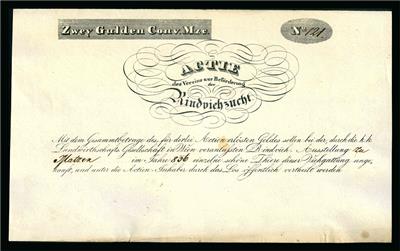 Zwey Gulden Conv. Mze.
No 121
ACTIE
des Vereins zur Beförderung
der
Rindviehzucht
Mit dem Gesammtbetrage des, für derlei Actien erlösten Geldes sollen bei der, durch die k. k.
Landwirthschafts Gesellschaft in Wien veranlassten Rindvieh-Ausstellung zu
Matzen im Jahre 836 einzelne schöne Thiere dieser Viehgattung ange-
kauft, und unter die Actien-Inhaber durch das Los öffentlich vertheilt werden.